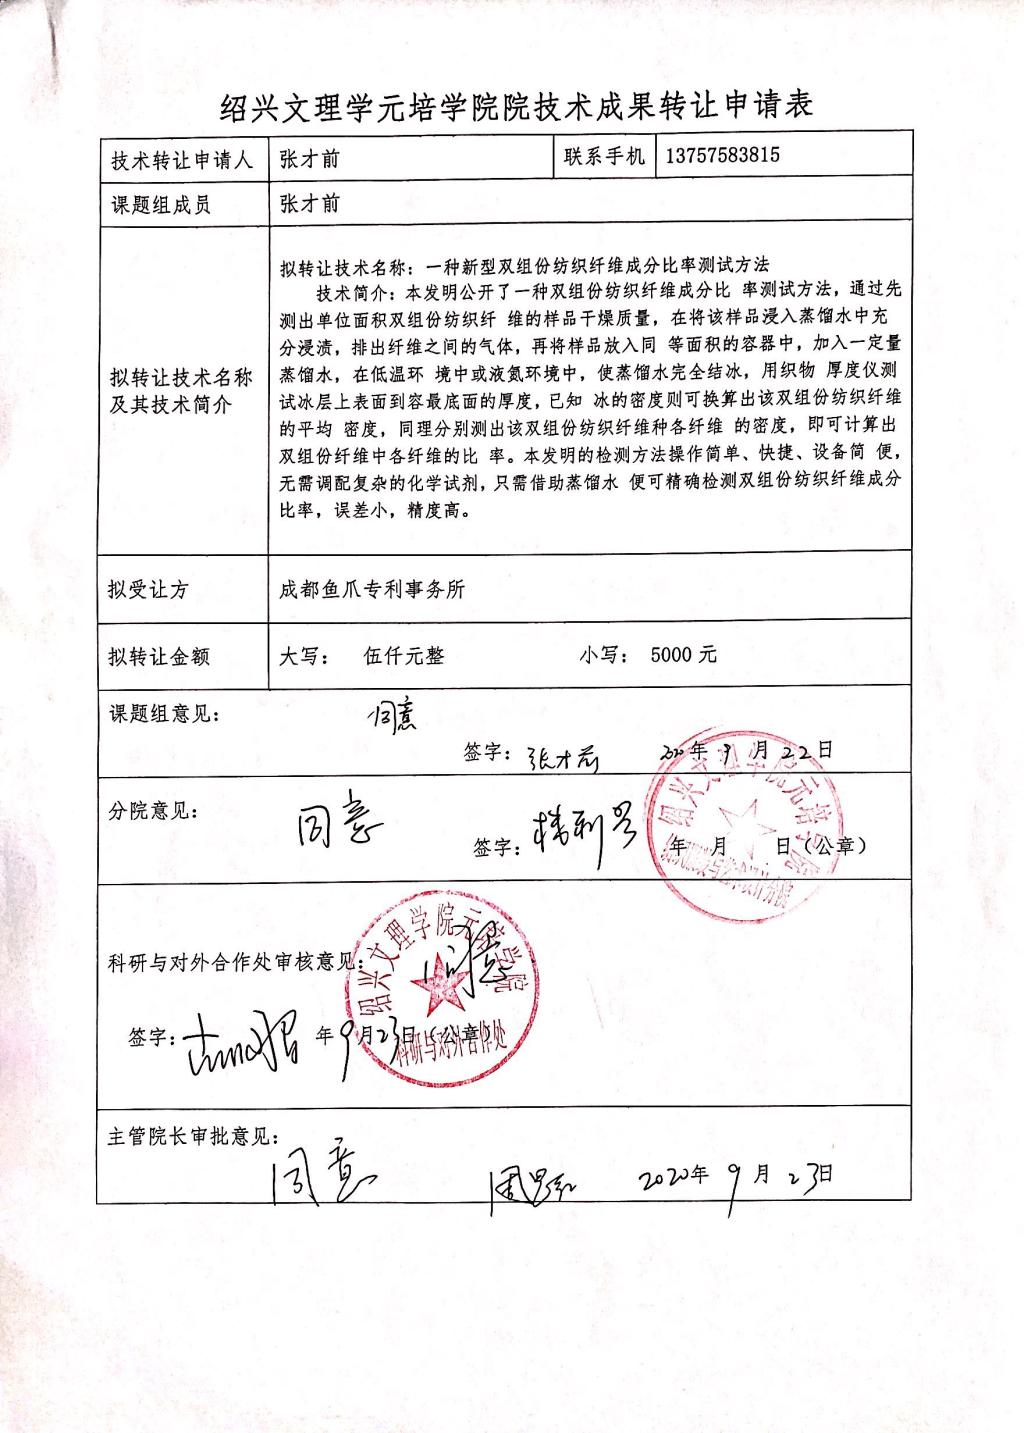 绍兴文理学元培学院院技术成果转让申请表
技术转让申请人 张才前 联系手机 13757583815
课题组成员 张才前
拟转让技术名称及其技术简介
拟转让技术名称：一种新型双组份纺织纤维成分比率测试方法
技术简介：本发明公开了一种双组份纺织纤维成分比 率测试方法，通过先
测出单位面积双组份纺织纤 维的样品干燥质量，在将该样品浸入蒸馏水中充
分浸渍，排出纤维之间的气体，再将样品放入同 等面积的容器中，加入一定量
蒸馏水，在低温环 境中或液氮环境中，使蒸馏水完全结冰，用织物 厚度仪测
试冰层上表面到容最底面的厚度，已知 冰的密度则可换算出该双组份纺织纤维
的平均 密度，同理分别测出该双组份纺织纤维种各纤维 的密度，即可计算出
双组份纤维中各纤维的比 率。本发明的检测方法操作简单、快捷、设备简 便，
无需调配复杂的化学试剂，只需借助蒸馏水 便可精确检测双组份纺织纤维成分
比率，误差小，精度高。
拟受让方 成都鱼爪专利事务所
拟转让金额 大写： 伍仟元整 小写： 5000 元
课题组意见： 同意
签字：张才前 2020年 9 月 22 日
分院意见： 同意
签字： 年 月 日（公章）
绍兴文理学院元培学院
科研与对外合作处审核意见： 同意
绍兴文理学院元培学院
科研与对外合作处
签字： 年 9 月 23 日（公章）
主管院长审批意见：
同意 2020年 9 月 23日